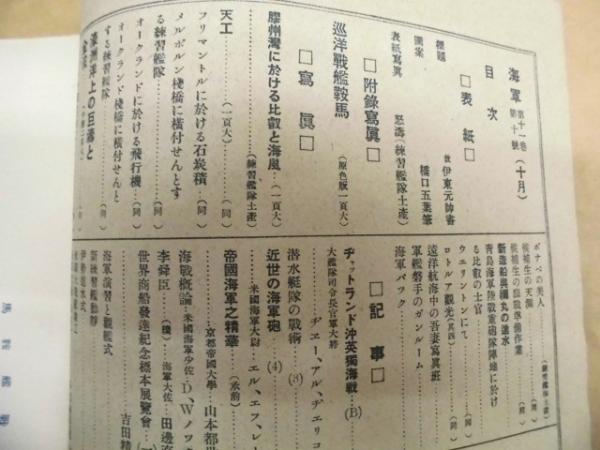 海軍 第十一卷 第十號 (十月)
目次
□表紙□
標題 故 伊東元帥書
圖案 橋口五葉筆
表紙寫眞 怒濤(練習艦隊土產)
□附錄寫眞□
巡洋戰艦鞍馬 (原色版一頁大)
□寫眞□
膠州灣に於ける比叡と海風…(一頁大)
(練習艦隊土產)
天工……(一頁大)
フリマントルに於ける石炭積……(同)
メルボルン棧橋に橫付せんとする練習艦隊……(同)
オークランドに於ける飛行機……(同)
オークランド棧橋に橫付せんとする練習艦隊
濠洲洋上の巨濤と
ポナペの美人
候補生の天測……(同)
候補生の臨戰準備作業……(同)
新造船與禰丸の進水
靑島海軍陸戰重砲隊陣地に於ける比叡の士官
ウエリントンにて……(同)
ロトルア觀光(其四)……(同)
遠洋航海中の吾妻寫眞班
軍艦磐手のガンルーム
海軍パック
□記事□
ヂャットランド沖英獨海戰……(B)
大艦隊司令長官軍大將
ヂエー、アル、ヂエリコ
潛水艇隊の戰術……(3)
近世の海軍砲……(4)
米國海軍大尉 エル、エフ、レ
帝國海軍之精華……(承前)
京都帝國大學 山本都
海戰概論…米國海軍少佐…D、Wノック
李舜臣……(續)…海軍大佐…田邊
世界商船發達紀念標本展覽會
吉田精
海軍演習と觀艦式
新練習艦動靜
伊勢進水式